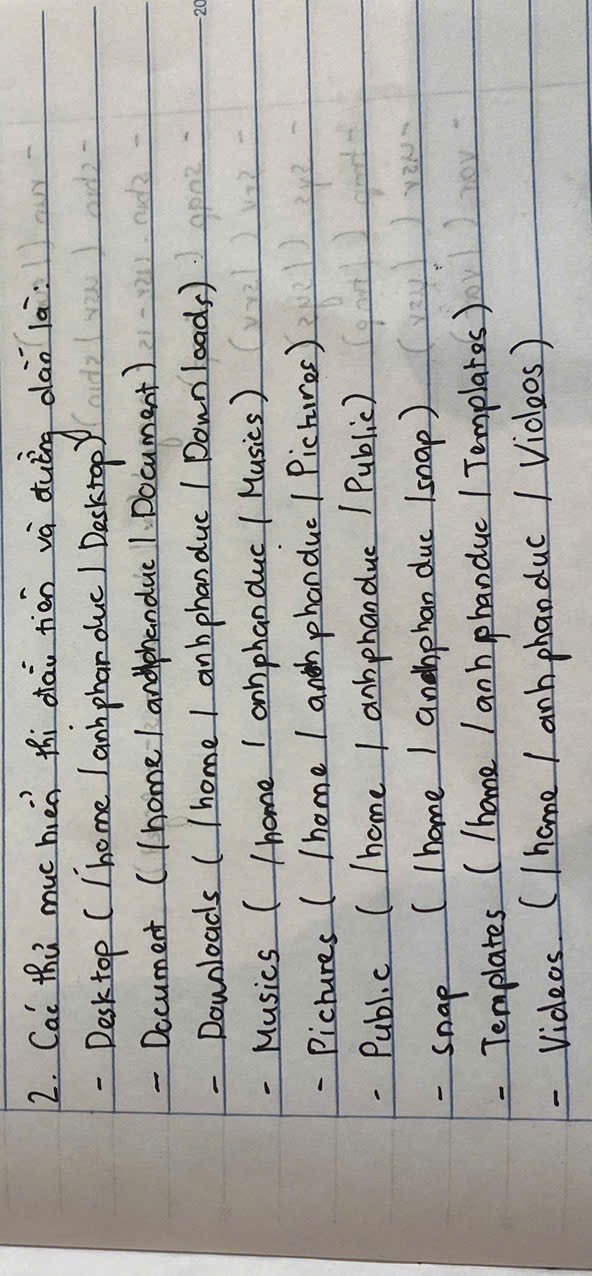 2. Các thư mục hiển thị đầu tiên và đường dẫn là:
- Desktop ( /home /anhphanduc / Desktop)
- Document ( /home / anhphanduc / Document)
- Downloads ( /home / anhphanduc / Downloads)
- Musics ( /home / anhphanduc / Musics)
- Pictures ( /home / anhphanduc / Pictures)
- Public ( /home / anhphanduc / Public)
- snap ( /home / anhphanduc /snap)
- Templates ( /home / anhphanduc / Templates)
- Videos ( /home / anhphanduc / Videos)
20